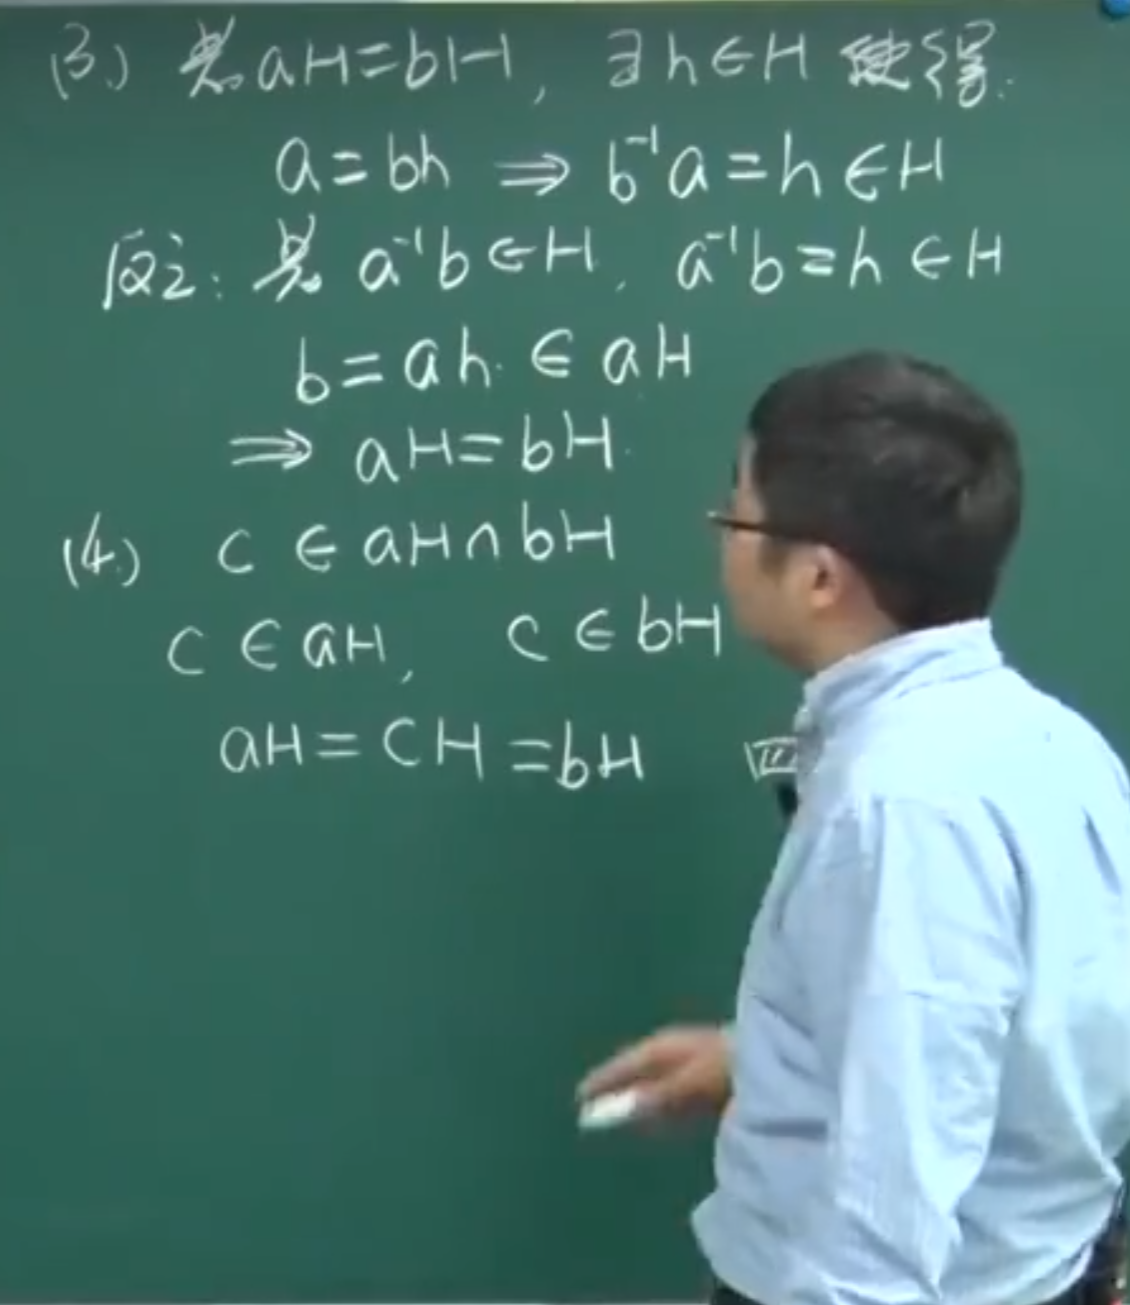 (3.) 若 aH=bH, ∃h∈H 使得.
a=bh ⇒ b⁻¹a=h∈H
反之: 若 a⁻¹b∈H, a⁻¹b=h∈H
b=ah. ∈aH
⇒ aH=bH.
(4.) c∈aH∩bH
c∈aH, c∈bH
aH=CH=bH